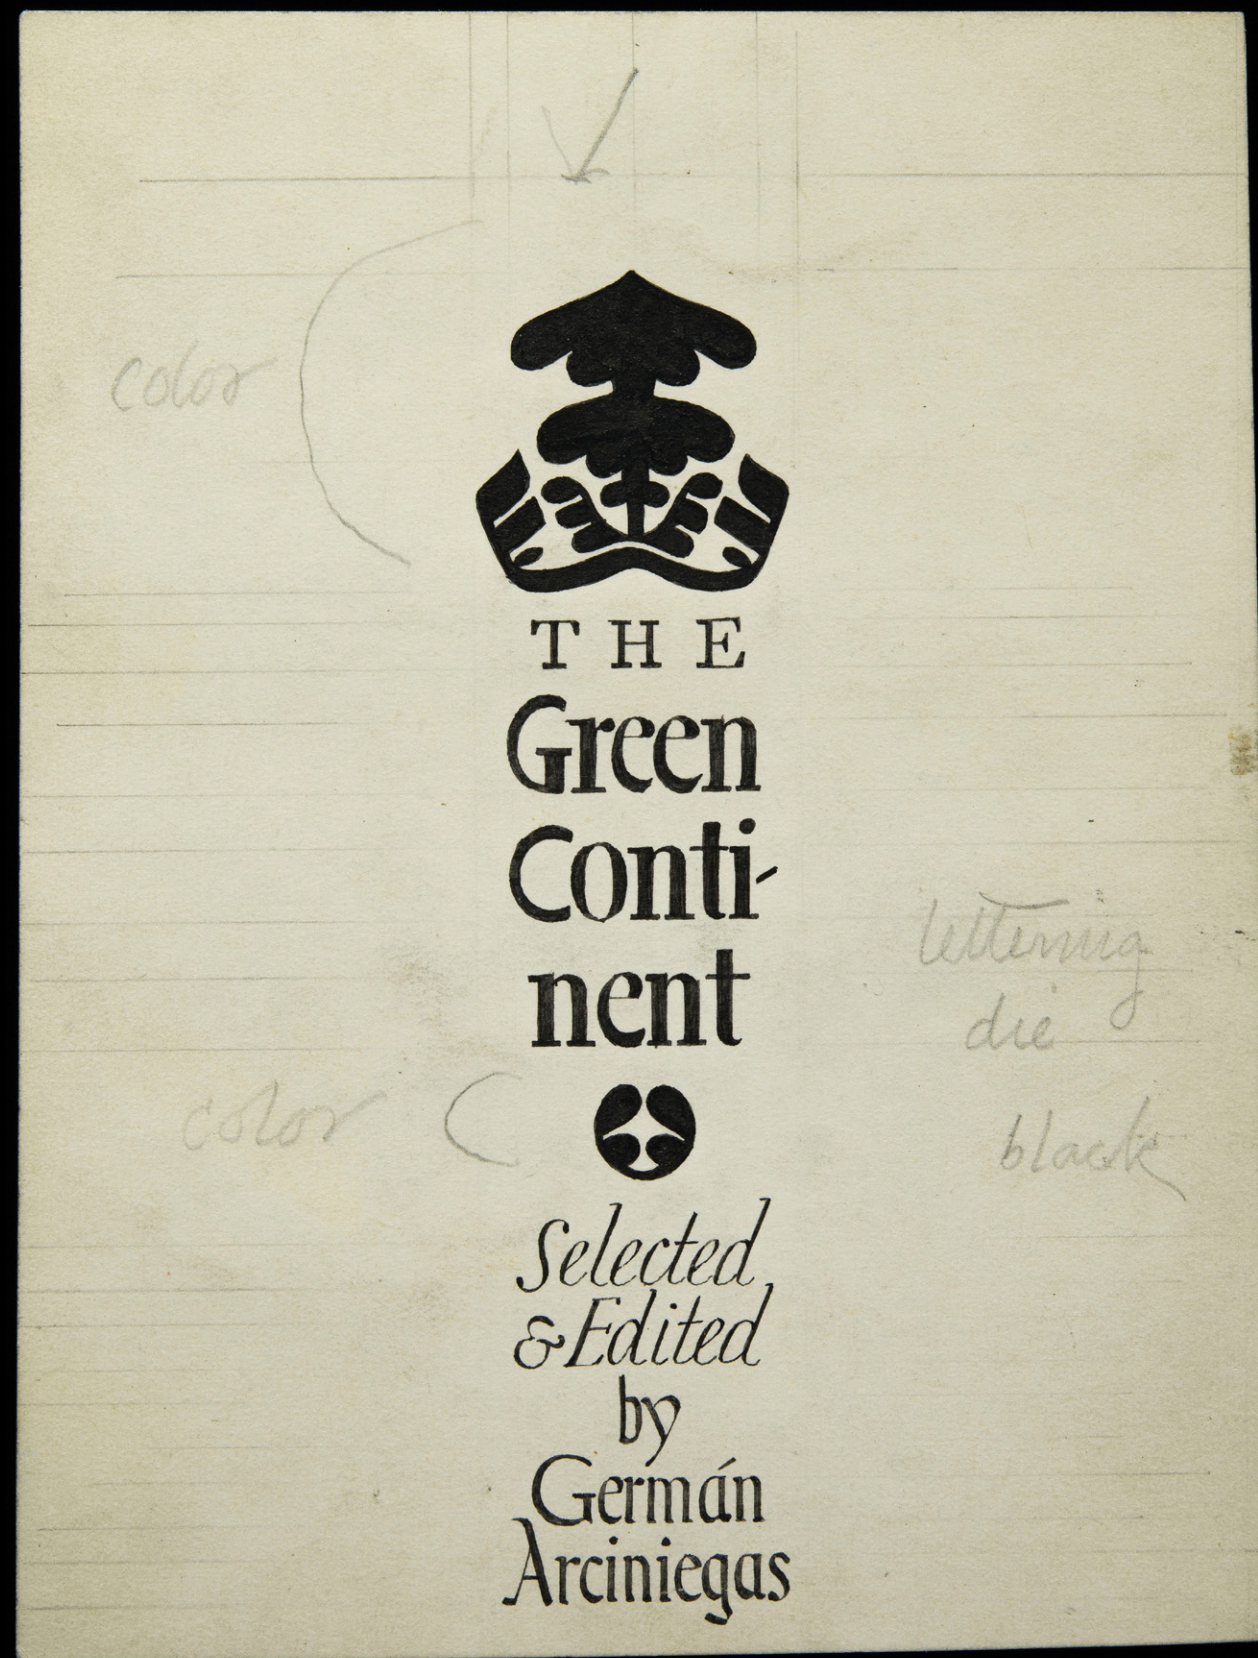 color
THE
Green
Conti-
nent
lettering
die
color
black
Selected
& Edited
by
Germán
Arciniegas